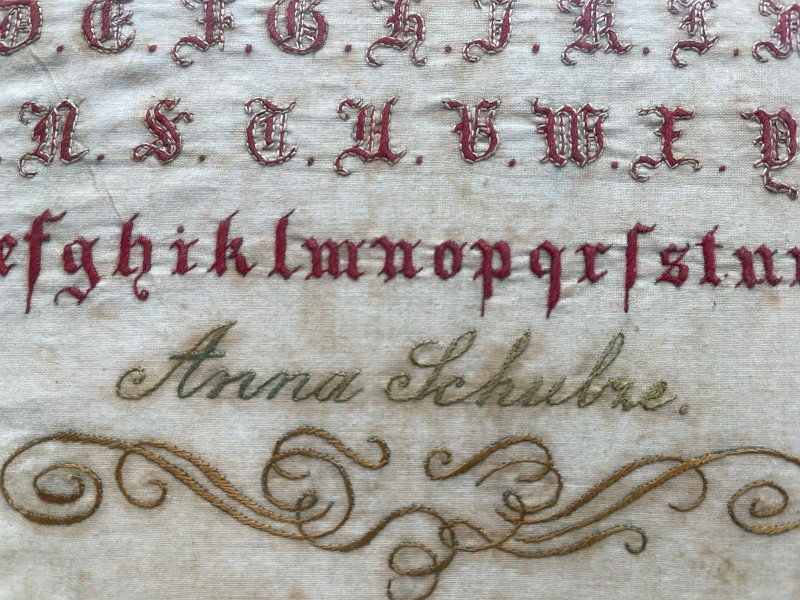 D. E. F. G. H. J. K. L. M
N. S. T. U. V. W. X. Y
efghiklmnopqrſstuv
Anna Schubze.